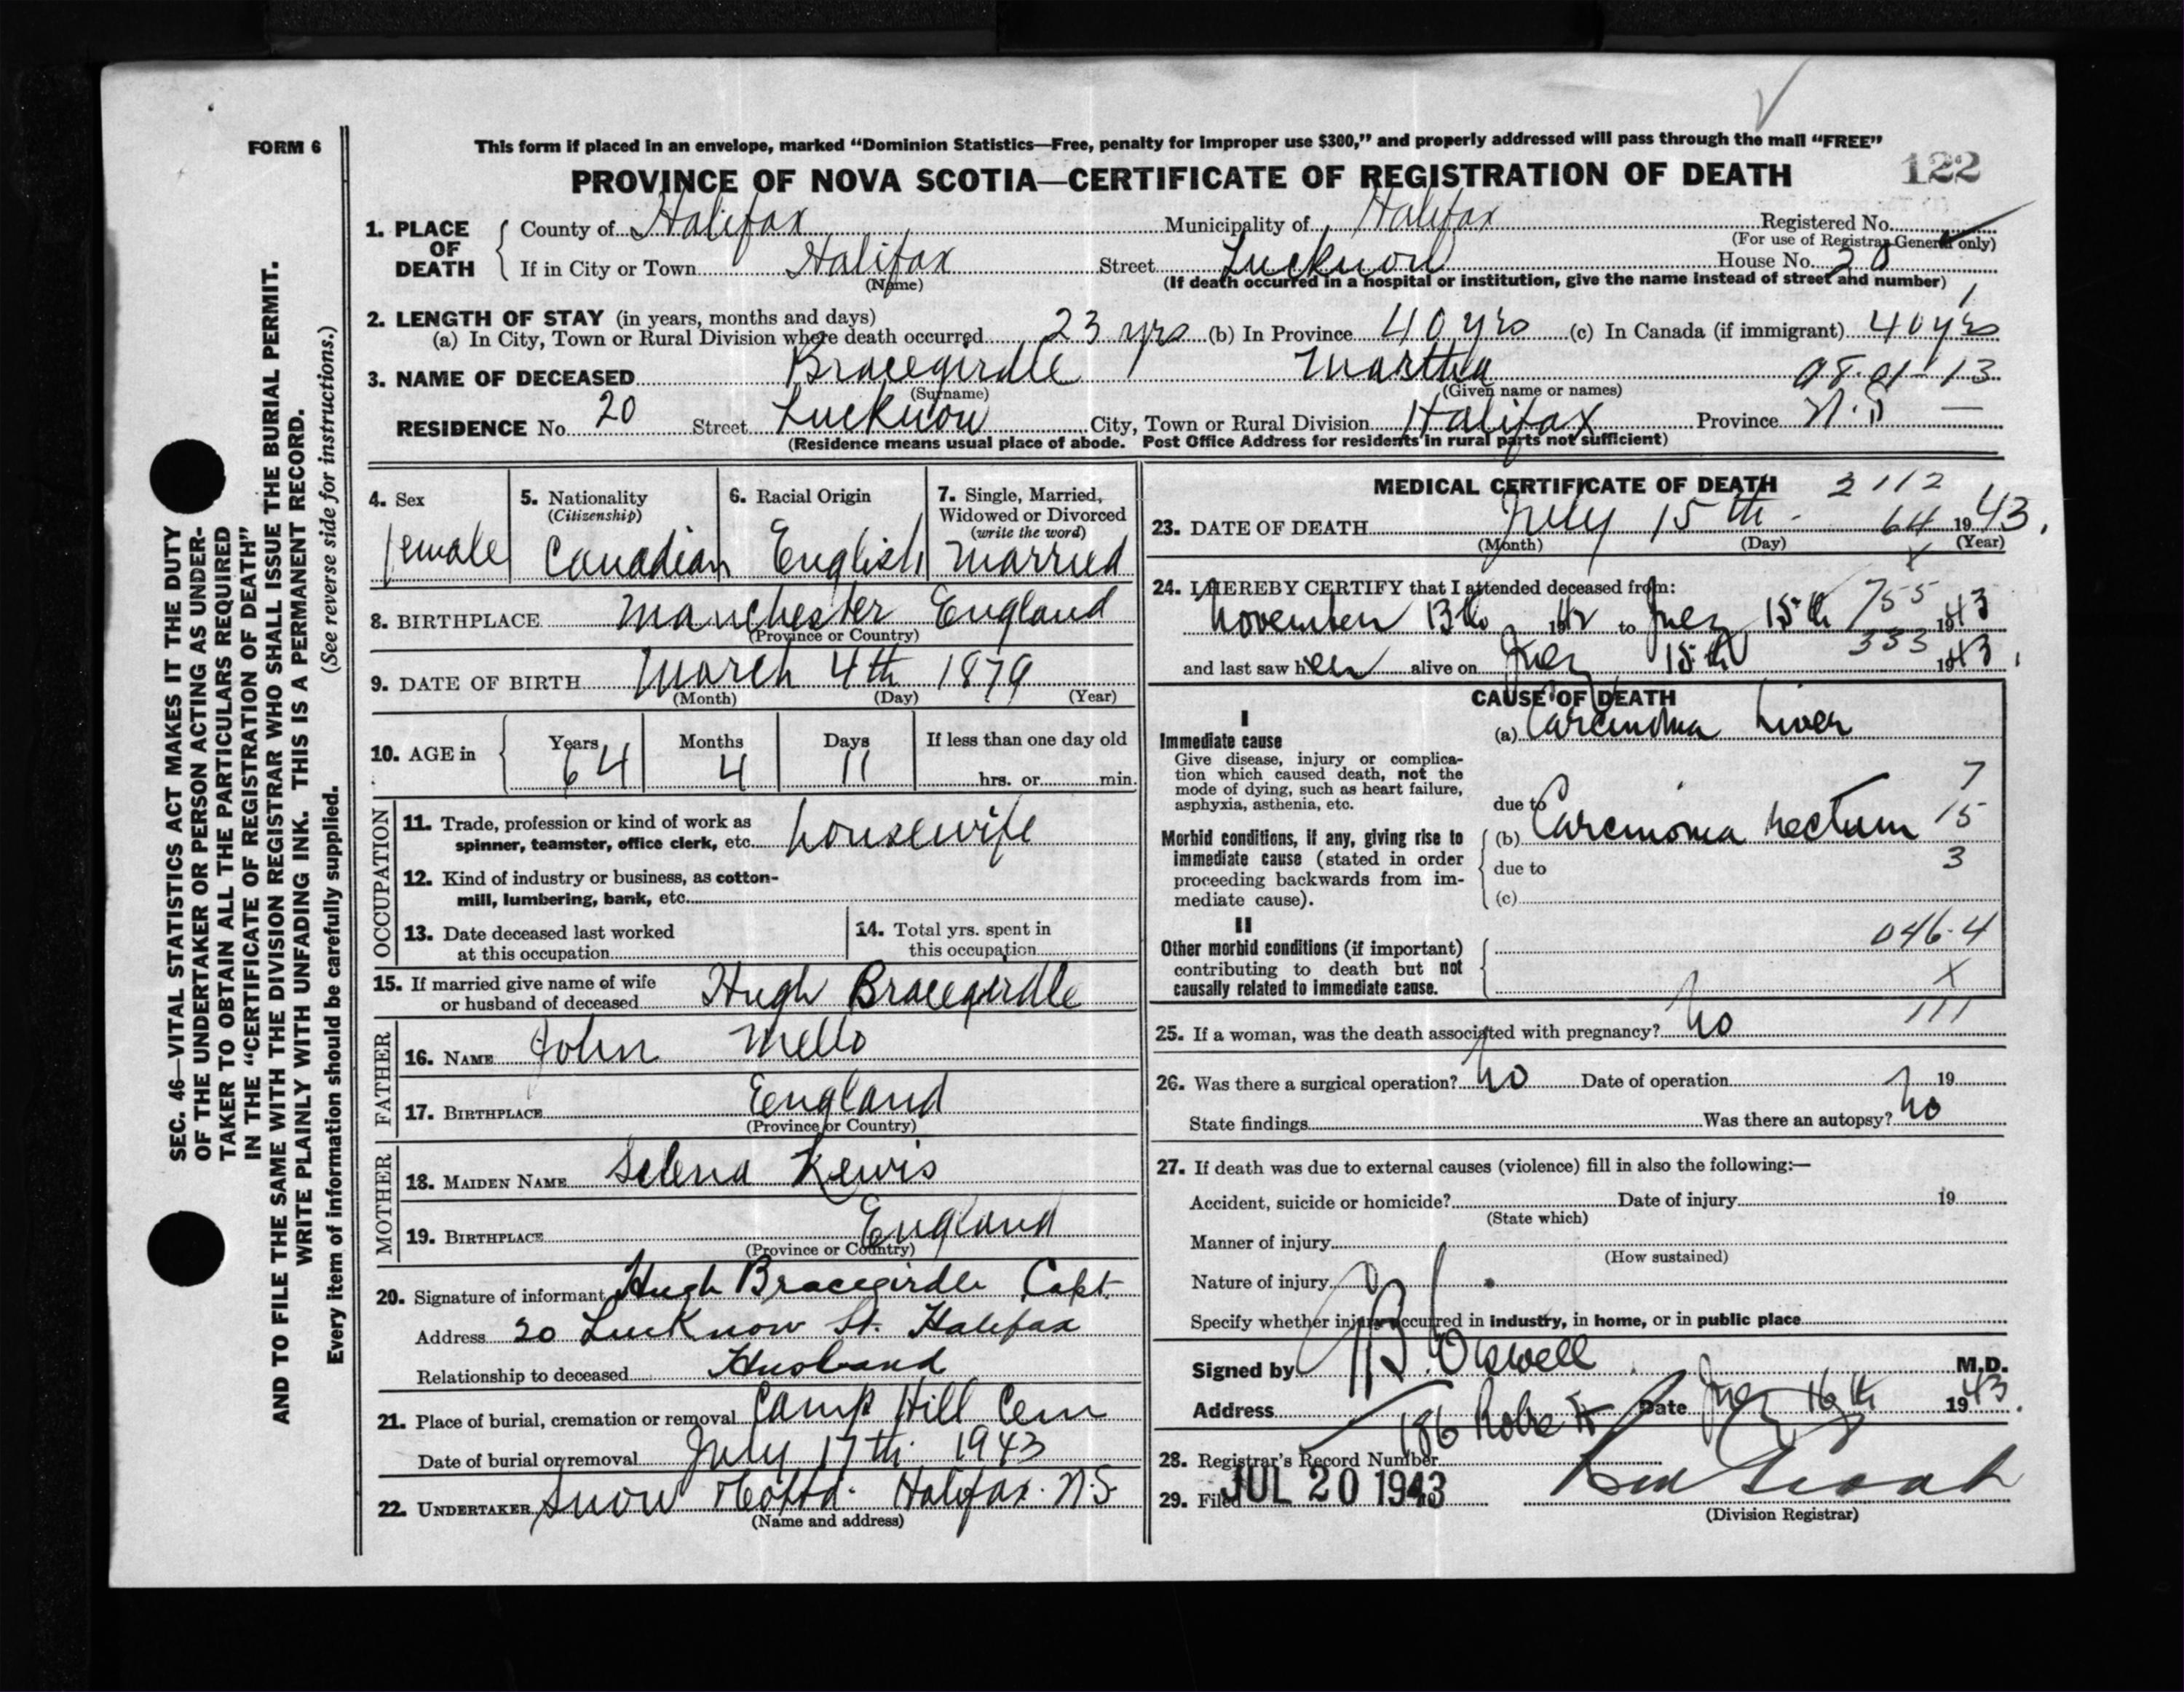 FORM 6
SEC. 46—VITAL STATISTICS ACT MAKES IT THE DUTY
OF THE UNDERTAKER OR PERSON ACTING AS UNDER-
TAKER TO OBTAIN ALL THE PARTICULARS REQUIRED
IN THE "CERTIFICATE OF REGISTRATION OF DEATH"
AND TO FILE THE SAME WITH THE DIVISION REGISTRAR WHO SHALL ISSUE THE BURIAL PERMIT.
WRITE PLAINLY WITH UNFADING INK. THIS IS A PERMANENT RECORD.
Every item of information should be carefully supplied. (See reverse side for instructions.)
This form if placed in an envelope, marked "Dominion Statistics—Free, penalty for improper use $300," and properly addressed will pass through the mail "FREE"
PROVINCE OF NOVA SCOTIA—CERTIFICATE OF REGISTRATION OF DEATH 122
1. PLACE OF DEATH County of Halifax Municipality of Halifax Registered No.
(For use of Registrar General only)
If in City or Town Halifax Street Lucknow House No. 20
(Name) (If death occurred in a hospital or institution, give the name instead of street and number)
2. LENGTH OF STAY (in years, months and days)
(a) In City, Town or Rural Division where death occurred 23 yrs (b) In Province 40 yrs (c) In Canada (if immigrant) 40 yrs
3. NAME OF DECEASED Bracegirdle Martha
(Surname) (Given name or names)
RESIDENCE No. 20 Street Lucknow City, Town or Rural Division Halifax Province N.S
(Residence means usual place of abode. Post Office Address for residents in rural parts not sufficient)
4. Sex female
5. Nationality (Citizenship) Canadian
6. Racial Origin English
7. Single, Married, Widowed or Divorced (write the word) Married
8. BIRTHPLACE Manchester England
(Province or Country)
9. DATE OF BIRTH March 4th 1879
(Month) (Day) (Year)
10. AGE in Years 64 Months 4 Days 11 If less than one day old
hrs. or min.
OCCUPATION
11. Trade, profession or kind of work as
spinner, teamster, office clerk, etc. housewife
12. Kind of industry or business, as cotton-
mill, lumbering, bank, etc.
13. Date deceased last worked
at this occupation
14. Total yrs. spent in
this occupation
15. If married give name of wife
or husband of deceased Hugh Bracegirdle
FATHER
16. NAME John Mello
17. BIRTHPLACE England
(Province or Country)
MOTHER
18. MAIDEN NAME Selena Lewis
19. BIRTHPLACE England
(Province or Country)
20. Signature of informant Hugh Bracegirdle Capt.
Address 20 Lucknow St. Halifax
Relationship to deceased Husband
21. Place of burial, cremation or removal Camp Hill Cem
Date of burial or removal July 17th 1943
22. UNDERTAKER Snow Halifax. N.S
(Name and address)
MEDICAL CERTIFICATE OF DEATH 2112
23. DATE OF DEATH July 15th 64 1943.
(Month) (Day) (Year)
24. I HEREBY CERTIFY that I attended deceased from: 755
November 13th 1942 to July 15th 1943
333
and last saw her alive on July 15th 1943
CAUSE OF DEATH
I
Immediate cause
Give disease, injury or complica-
tion which caused death, not the
mode of dying, such as heart failure,
asphyxia, asthenia, etc.
(a) Carcinoma Liver
7
due to
Morbid conditions, if any, giving rise to
immediate cause (stated in order
proceeding backwards from im-
mediate cause).
(b) Carcinoma rectum 15
due to 3
(c)
II
Other morbid conditions (if important)
contributing to death but not
causally related to immediate cause.
046.4
X
111
25. If a woman, was the death associated with pregnancy? No
26. Was there a surgical operation? No Date of operation 19
State findings Was there an autopsy? No
27. If death was due to external causes (violence) fill in also the following:—
Accident, suicide or homicide? Date of injury 19
(State which)
Manner of injury
(How sustained)
Nature of injury
Specify whether injury occurred in industry, in home, or in public place
Signed by M.D.
Address 186 Robie St Date July 16th 1943.
28. Registrar's Record Number
29. Filed JUL 20 1943
(Division Registrar)